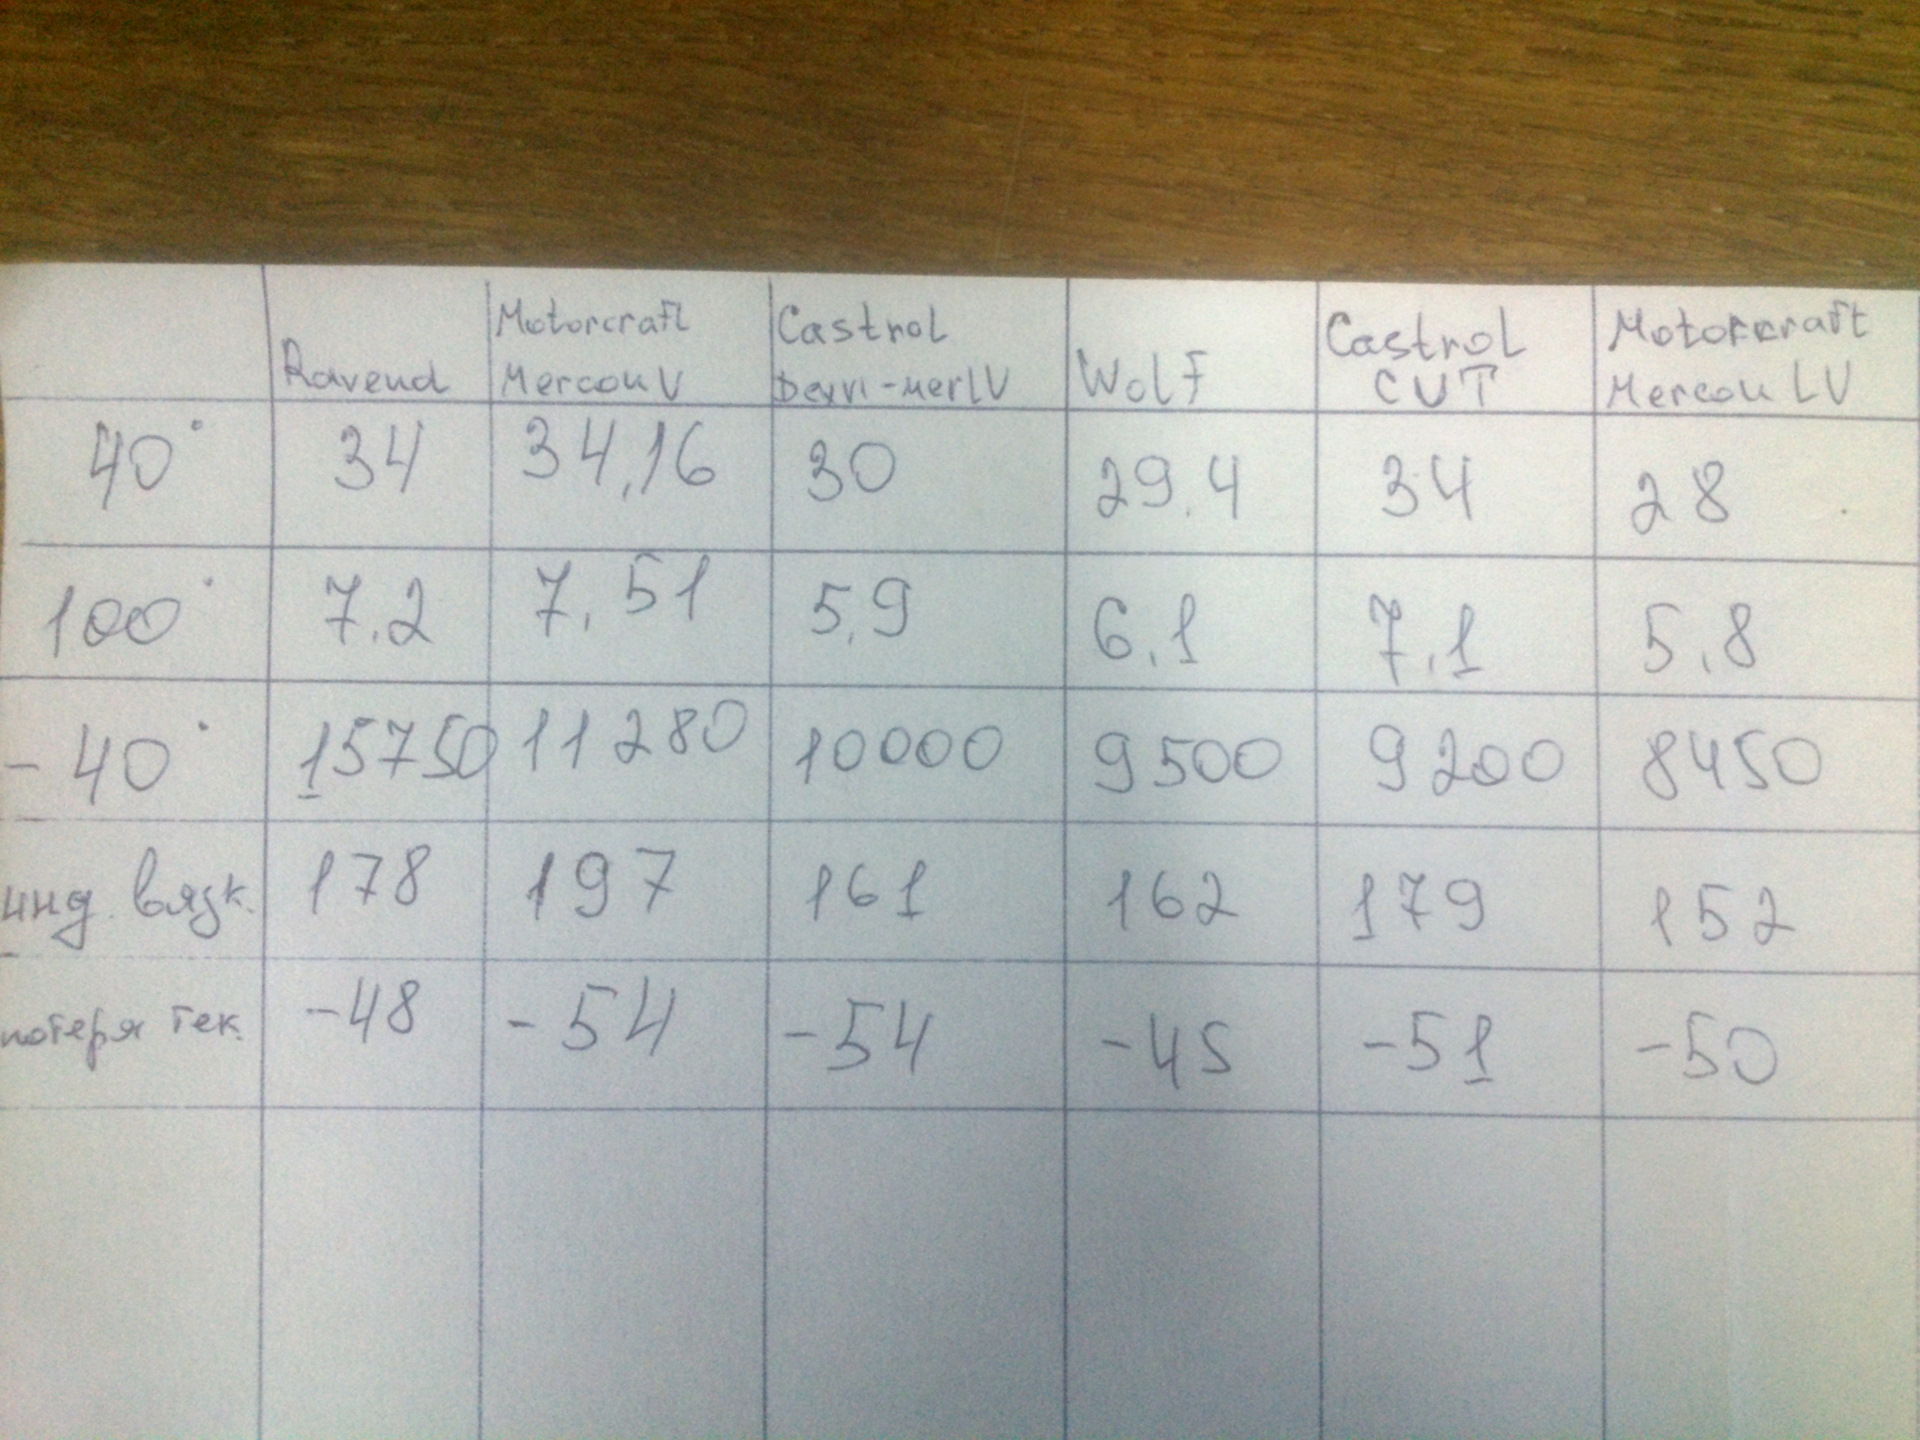 Ravenol Motorcraft Mercon V Castrol Dexvi-MerLV Wolf Castrol CVT Motorcraft Mercon LV
40° 34 34,16 30 29.4 34 28
100° 7.2 7,51 5,9 6,1 7,1 5,8
-40° 15750 11280 10000 9500 9200 8450
инд. вязк. 178 197 161 162 179 152
потеря тек. -48 -54 -54 -45 -51 -50